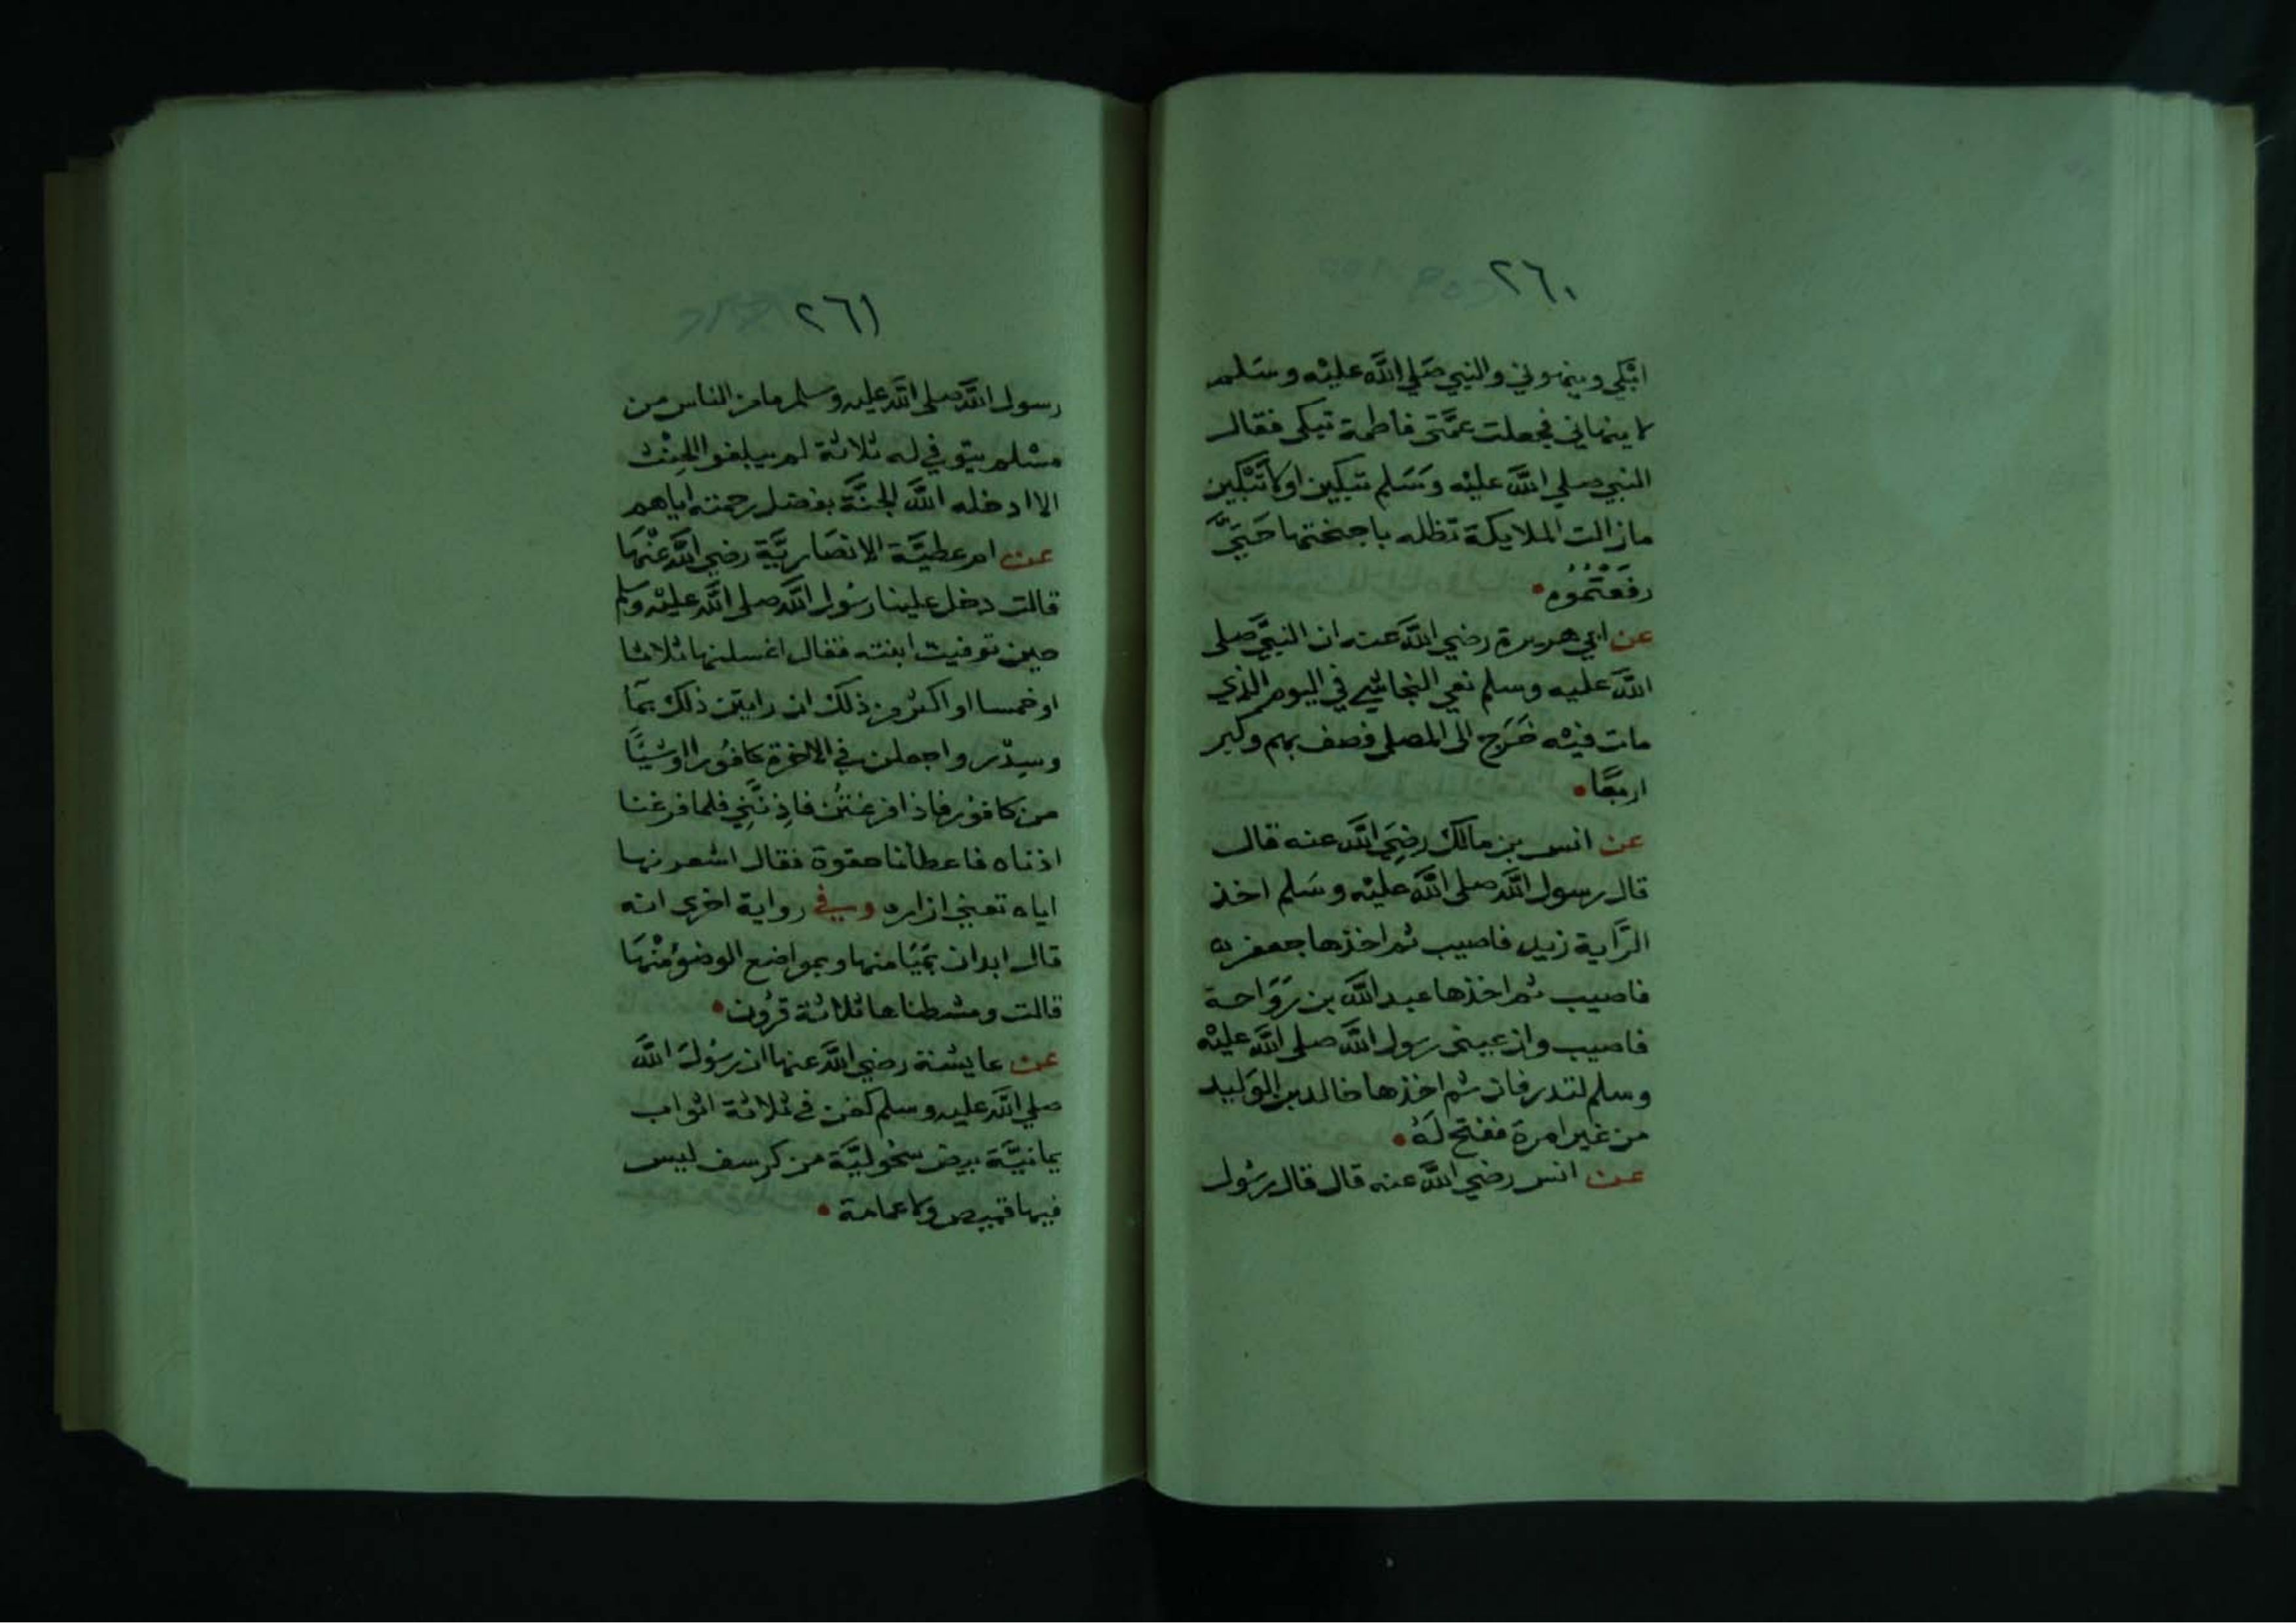 ٢٦٠
ابكي وينهوني والنبي صَلي اللَّه عليْه وسَلم
لا ينهاني فجعلت عمَّتي فاطمة تبكي فقال
النبي صلي اللَّه عليْه وَسَلم تبكين او لا تَبْكين
مازالت الملايكة تظله باجنحتها حَتيَّ
رفعْتمُوُه
عن ابي هريرة رضي اللَّه عنه ان النبيَّ صلى
اللَّه عليه وسلم نعي النجاشي في اليوم الذي
مات فيْه خَرَج الى المصلي فصف بهم وكبر
اربعًا
عن انس بن مالك رضِيَ اللَّه عنه قال
قال رسول اللَّه صلى اللَّه عليْه وسَلم اخذ
الرَّاية زيد فاصيب ثم اخذها جعفر
فاصيب ثم اخذها عبد اللَّه بن رَوَاحة
فاصيب وان عيني رسول اللَّه صلى اللَّه عليْه
وسلم لتدرفان ثم اخذها خالد بن الوَليد
من غير امرة ففتح لَهُ
عن انس رضي اللَّه عنه قال قال رسُول
٢٦١
رسول اللَّه صلى اللَّه عليه وسلم ما من الناس من
مسْلم يتوفي له ثلاثة لم يبلغوا الحِنْث
الا ادخله اللَّه الجنَّة بفضل رحمته اياهم
عن ام عطيَّة الانصَاريَّة رضي اللَّه عنْهَا
قالت دخل علينا رسُول اللَّه صلى اللَّه عليْه وسلم
حين توفيت ابنته فقال اغسلنها ثلاثا
او خمسا او اكثر من ذلك ان رايتن ذلك بمَا
وسِدْر واجعلن في الاخرة كافوُرا او شيًا
من كافور فاذا فرغتن فاذِنَّنِي فلما فرغنا
اذناه فاعطانا حقوة فقال اشعرنها
اياه تعني ازاره وفي رواية اخري انه
قال ابدان بمَيَامنها وبمواضع الوضؤ منْهَا
قالت ومشطناها ثلاثة قرُون
عن عايشة رضي اللَّه عنها ان رسُولَ اللَّه
صلي اللَّه عليه وسلم كفن في ثلاثة اثواب
يمانيَّة بيض سحوليَّة من كرسف ليس
فيها قميص ولا عمامة